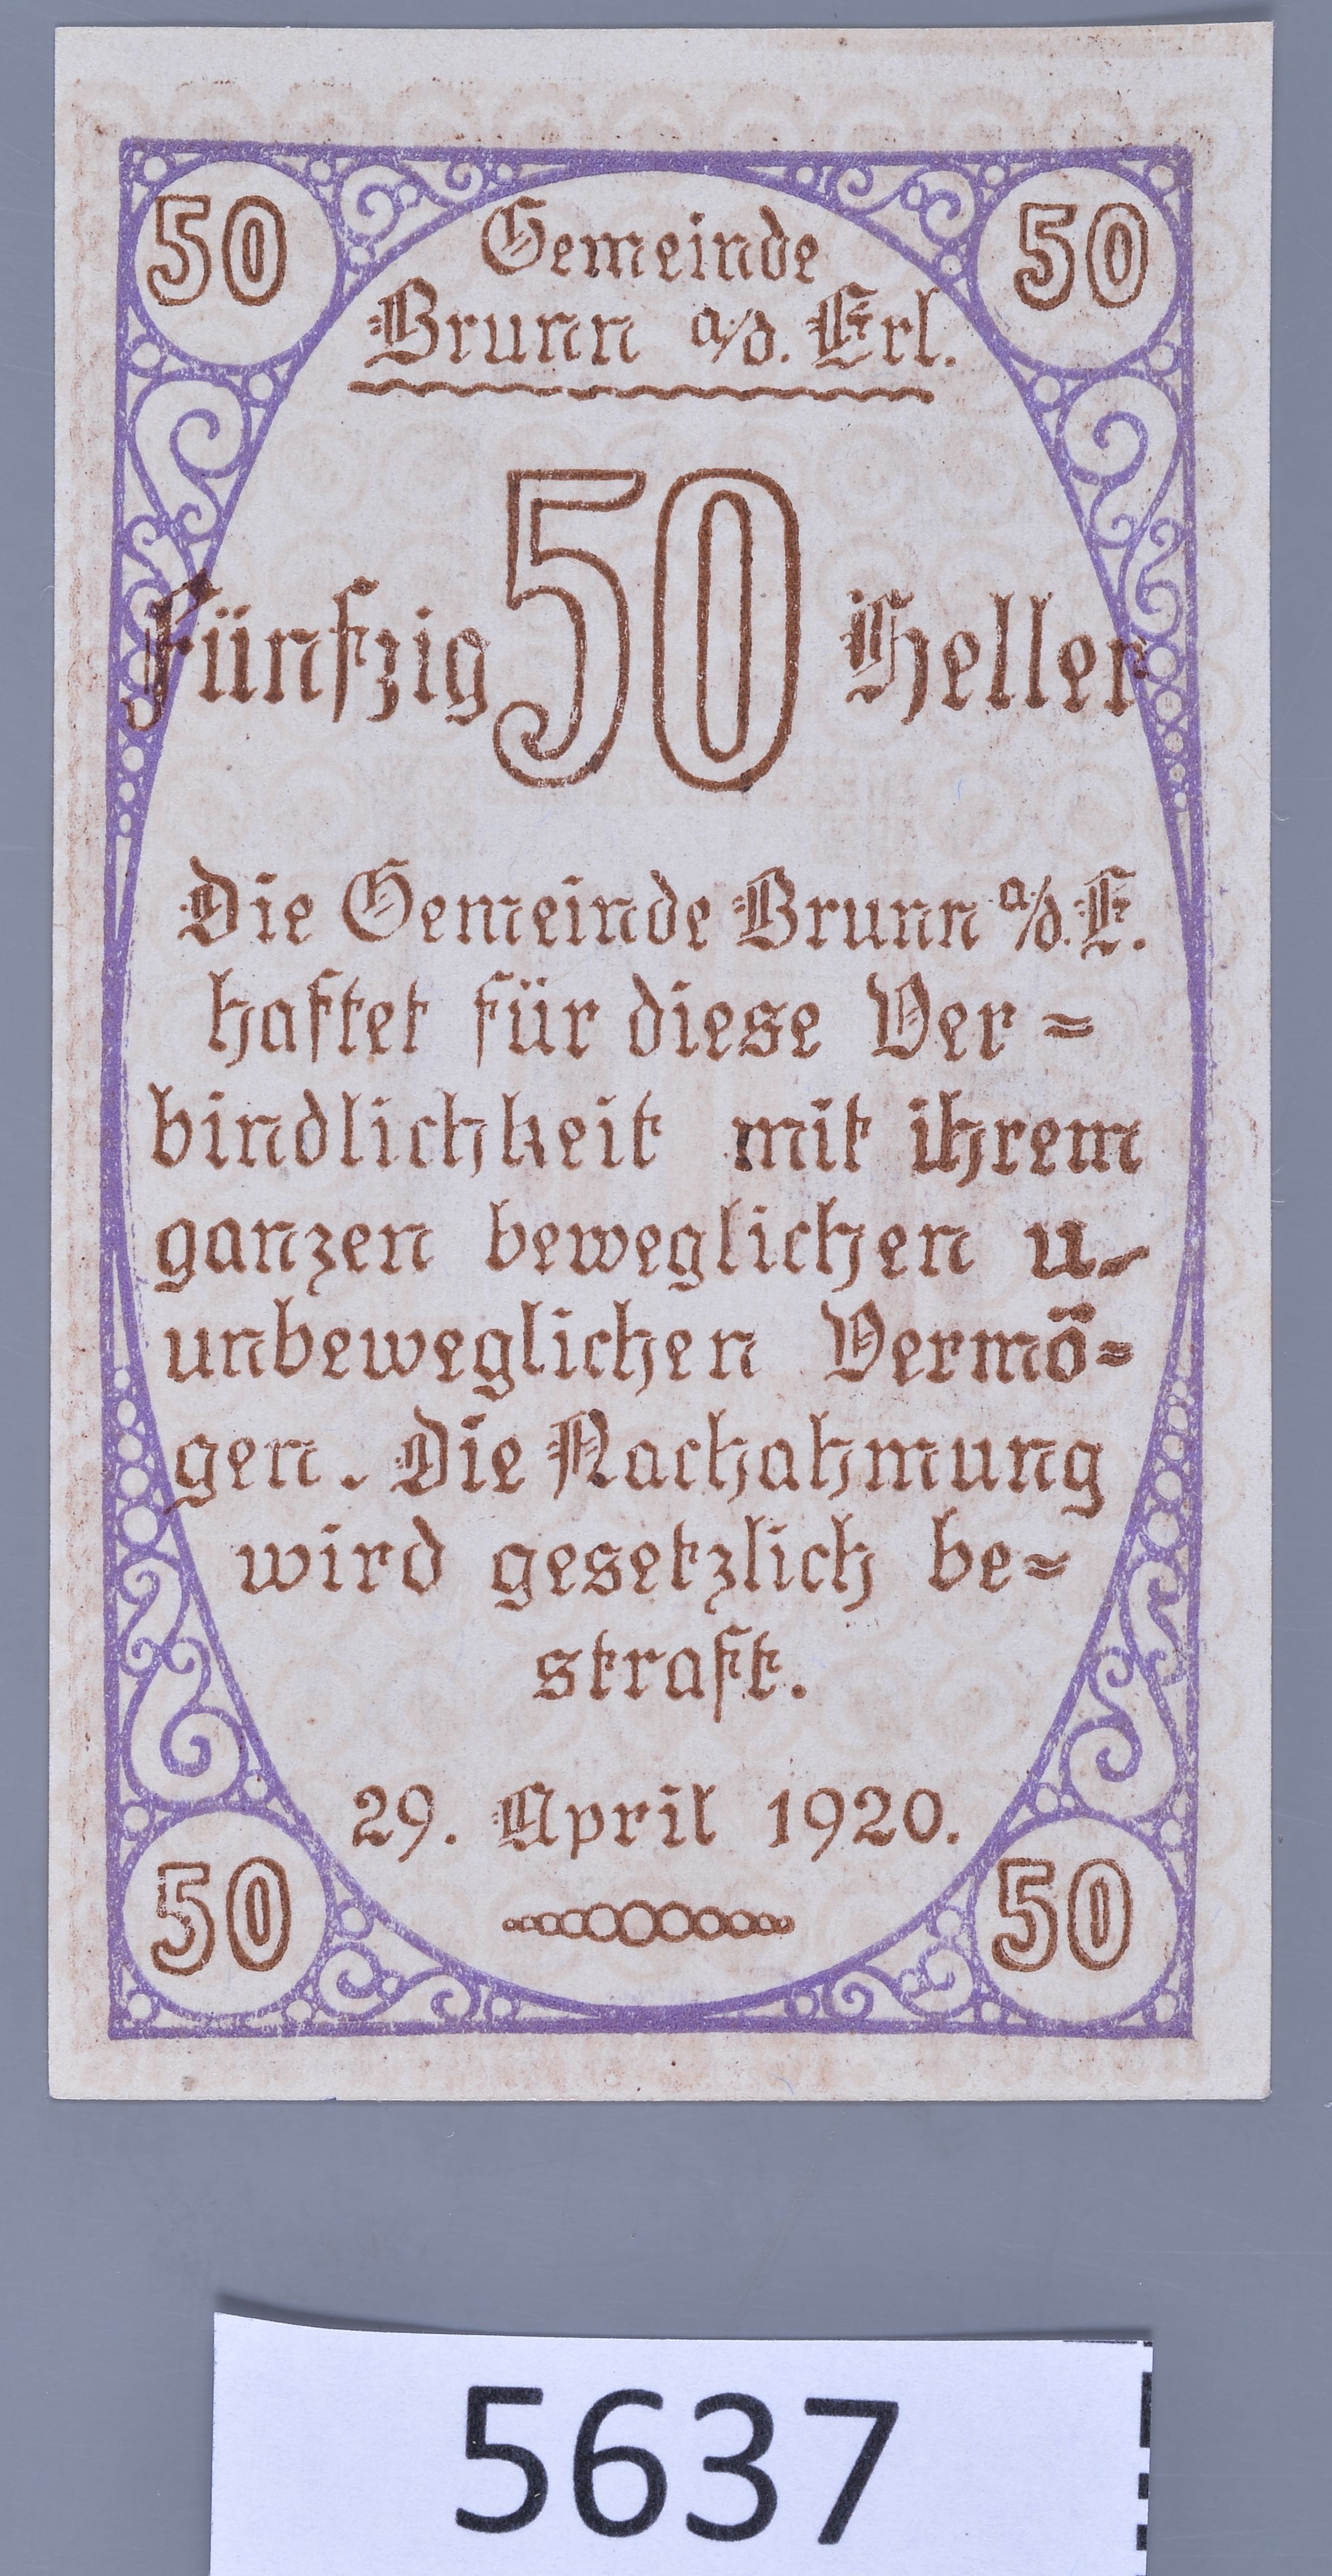 50 50
Gemeinde
Brunn a/d. Erl.
Fünfzig 50 Heller
Die Gemeinde Brunn a/d. E.
haftet für diese Ver=
bindlichkeit mit ihrem
ganzen beweglichen u.
unbeweglichen Vermö=
gen. Die Nachahmung
wird gesetzlich be=
straft.
29. April 1920.
50 50
5637